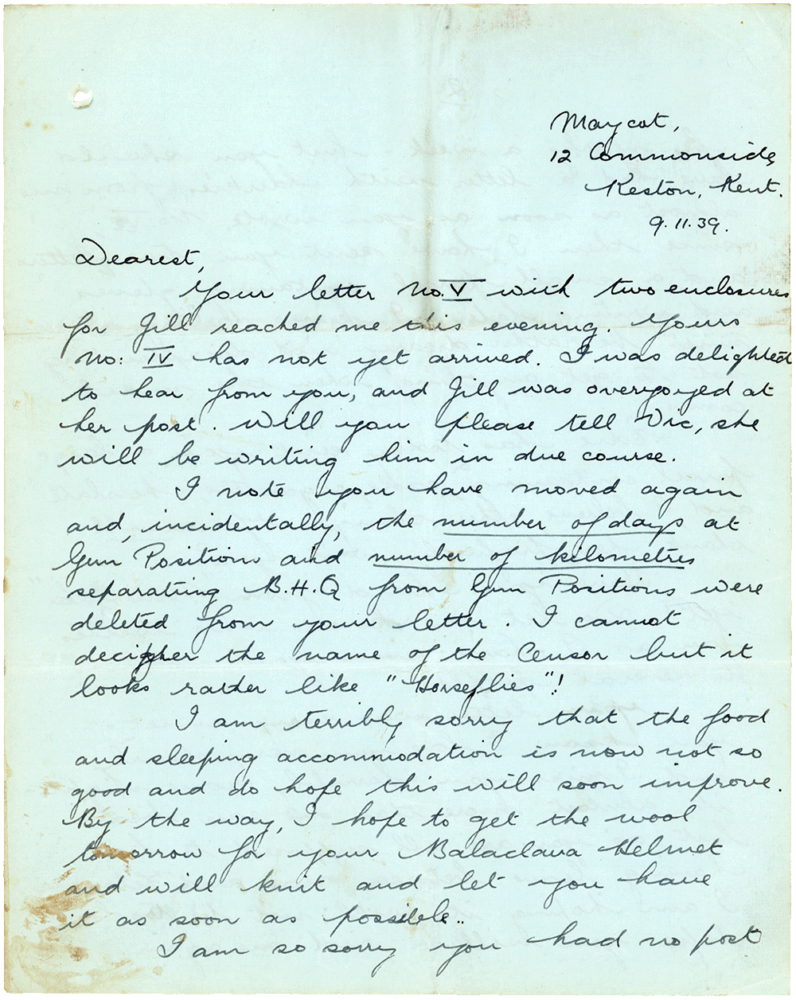 Maycot,
12 Commonside,
Keston, Kent.
9.11.39.
Dearest,
Your letter No. V with two enclosures
for Jill reached me this evening. Yours
No: IV has not yet arrived. I was delighted
to hear from you, and Jill was overjoyed at
her post. Will you please tell Vic, she
will be writing him in due course.
I note you have moved again
and, incidentally, the number of days at
Gun Position and number of kilometres
separating B.H.Q from Gun Positions were
deleted from your letter. I cannot
decipher the name of the Censor but it
looks rather like "Horseflies"!
I am terribly sorry that the food
and sleeping accommodation is now not so
good and do hope this will soon improve.
By the way, I hope to get the wool
tomorrow for your Balaclava Helmet
and will knit and let you have
it as soon as possible..
I am so sorry you had no post